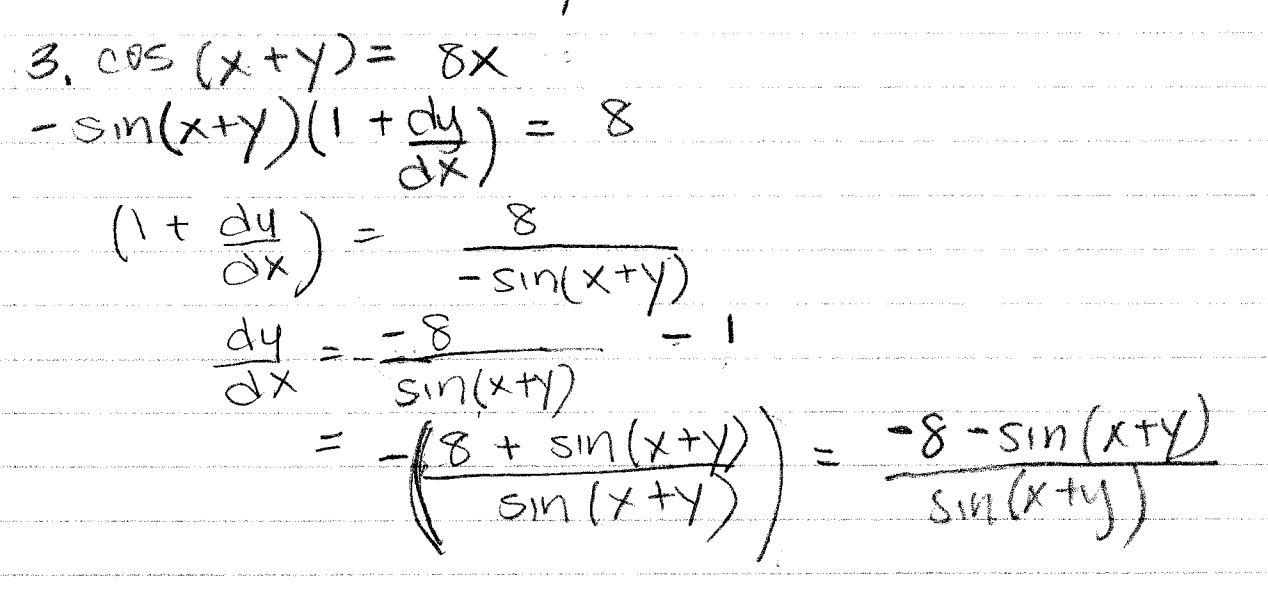 3. cos (x+y) = 8x
-sin(x+y)(1 + dy/dx) = 8
(1 + dy/dx) = 8/-sin(x+y)
dy/dx = -8/sin(x+y) - 1
= -(8 + sin(x+y)/sin(x+y)) = -8 - sin(x+y)/sin(x+y)